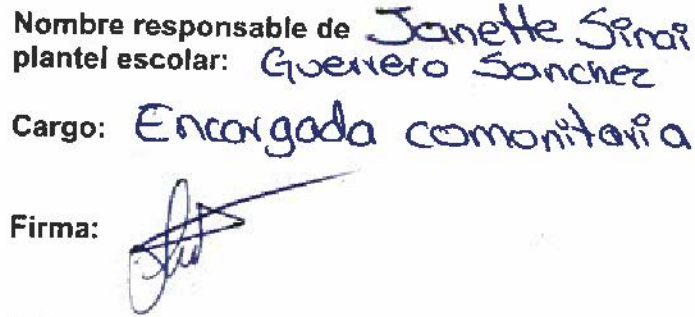 Nombre responsable de Janette Sinai
plantel escolar: Guerrero Sanchez
Cargo: Encargada comonitaria
Firma: